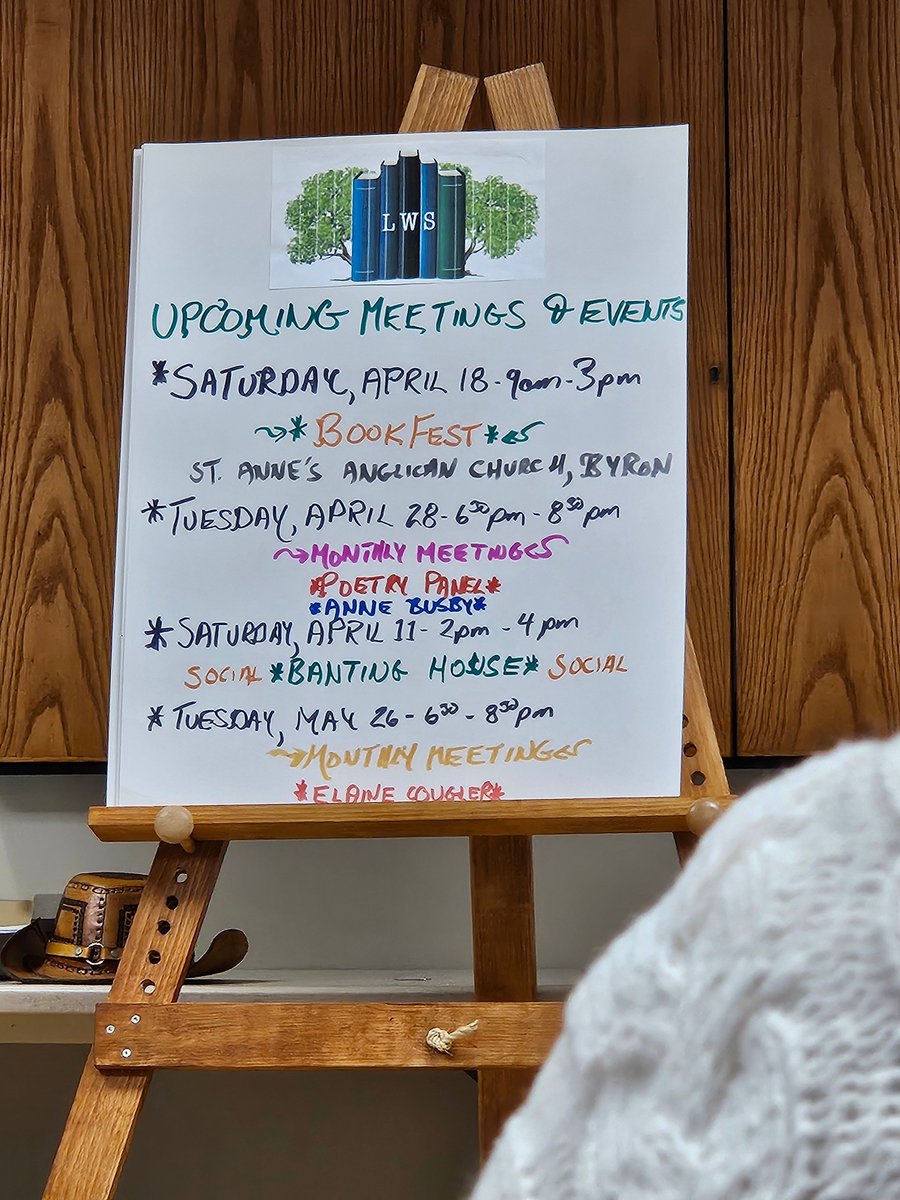 LWS
UPCOMING MEETINGS & EVENTS
*SATURDAY, APRIL 18-9am-3pm
*BOOKFEST*
ST. ANNE'S ANGLICAN CHURCH, BYRON
*TUESDAY, APRIL 28-6³⁰pm-8³⁰pm
MONTHLY MEETINGS
*POETRY PANEL*
*ANNE BUSBY*
*SATURDAY, APRIL 11-2pm-4pm
SOCIAL *BANTING HOUSE* SOCIAL
*TUESDAY, MAY 26-6³⁰-8³⁰pm
MONTHLY MEETINGS
*ELAINE COUGLER*